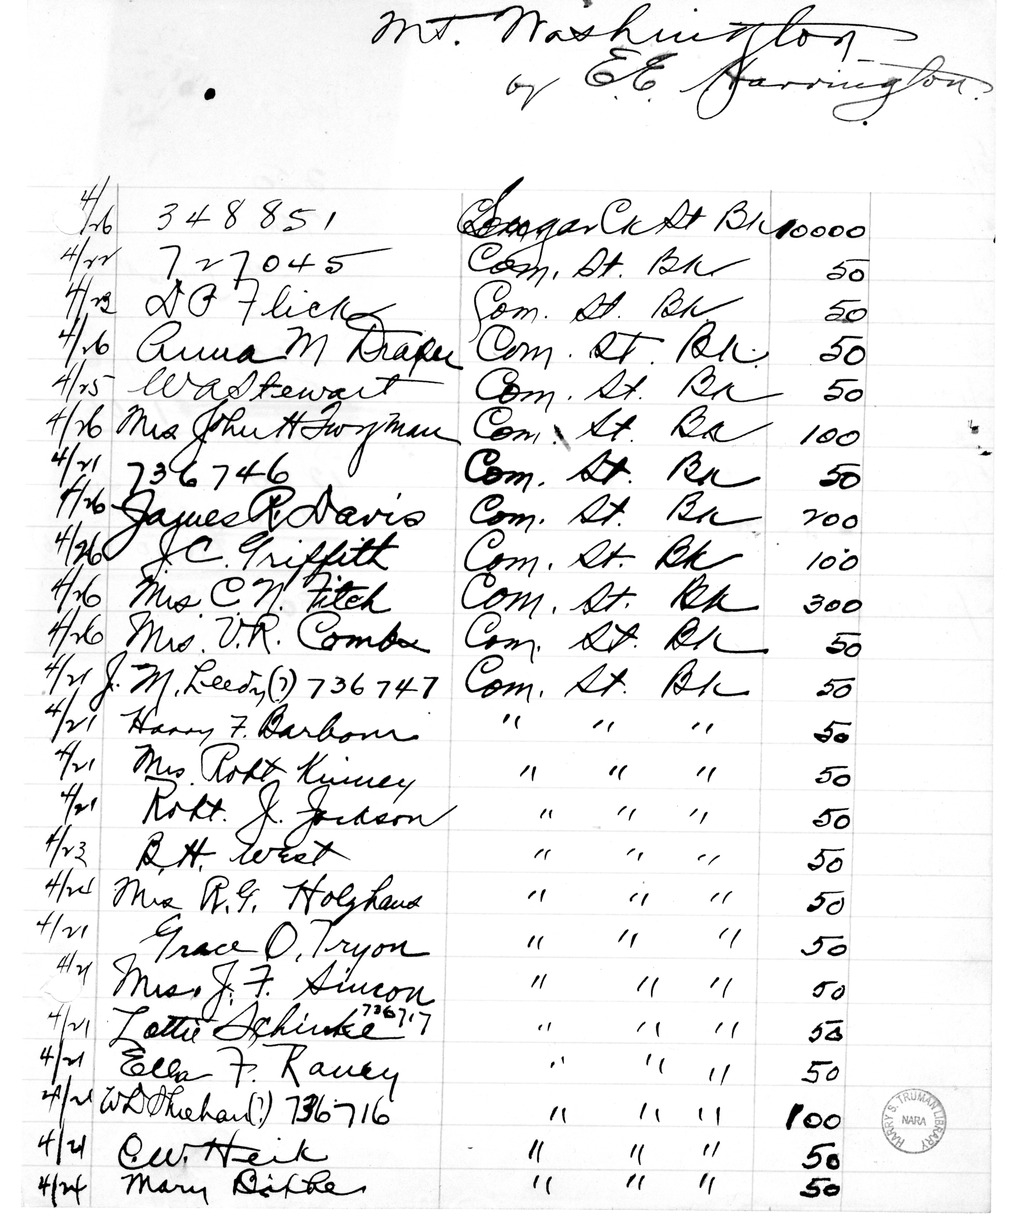 Mt. Washington
by E.E. Harrington.
4/26 348851 Sugar Ck St Bk 10000
4/22 727045 Com. St. Bk 50
4/23 D P Flick Com. St. Bk. 50
4/26 Anna M Draper Com. St. Bk. 50
4/25 W A Stewart Com. St. Bk 50
4/26 Mrs John H Twyman Com. St. Bk 100
4/21 736746 Com. St. Bk 50
4/26 James R. Davis Com. St. Bk 200
4/26 J. C. Griffith Com. St. Bk 100
4/26 Mrs. C. N. Fitch Com. St. Bk 300
4/26 Mrs. V. R. Combs Com. St. Bk 50
4/21 J. M. Leedy(?) 736747 Com. St. Bk 50
4/21 Harry F. Barbour " " " 50
4/21 Mrs. Robt Kinney " " " 50
4/21 Robt. J. Jackson " " " 50
4/23 B. H. West " " " 50
4/24 Mrs R. G. Holzhaus " " " 50
4/21 Grace O. Tryon " " " 50
4/21 Mrs. J. F. " " " 50
4/21 Lottie Schinke 736717 " " " 50
4/21 Ella F. Raney " " " 50
4/21 W D (?) 736716 " " " 100
4/21 C. W. Heik " " " 50
4/24 Mary " " " 50
HARRY S. TRUMAN LIBRARY
NARA